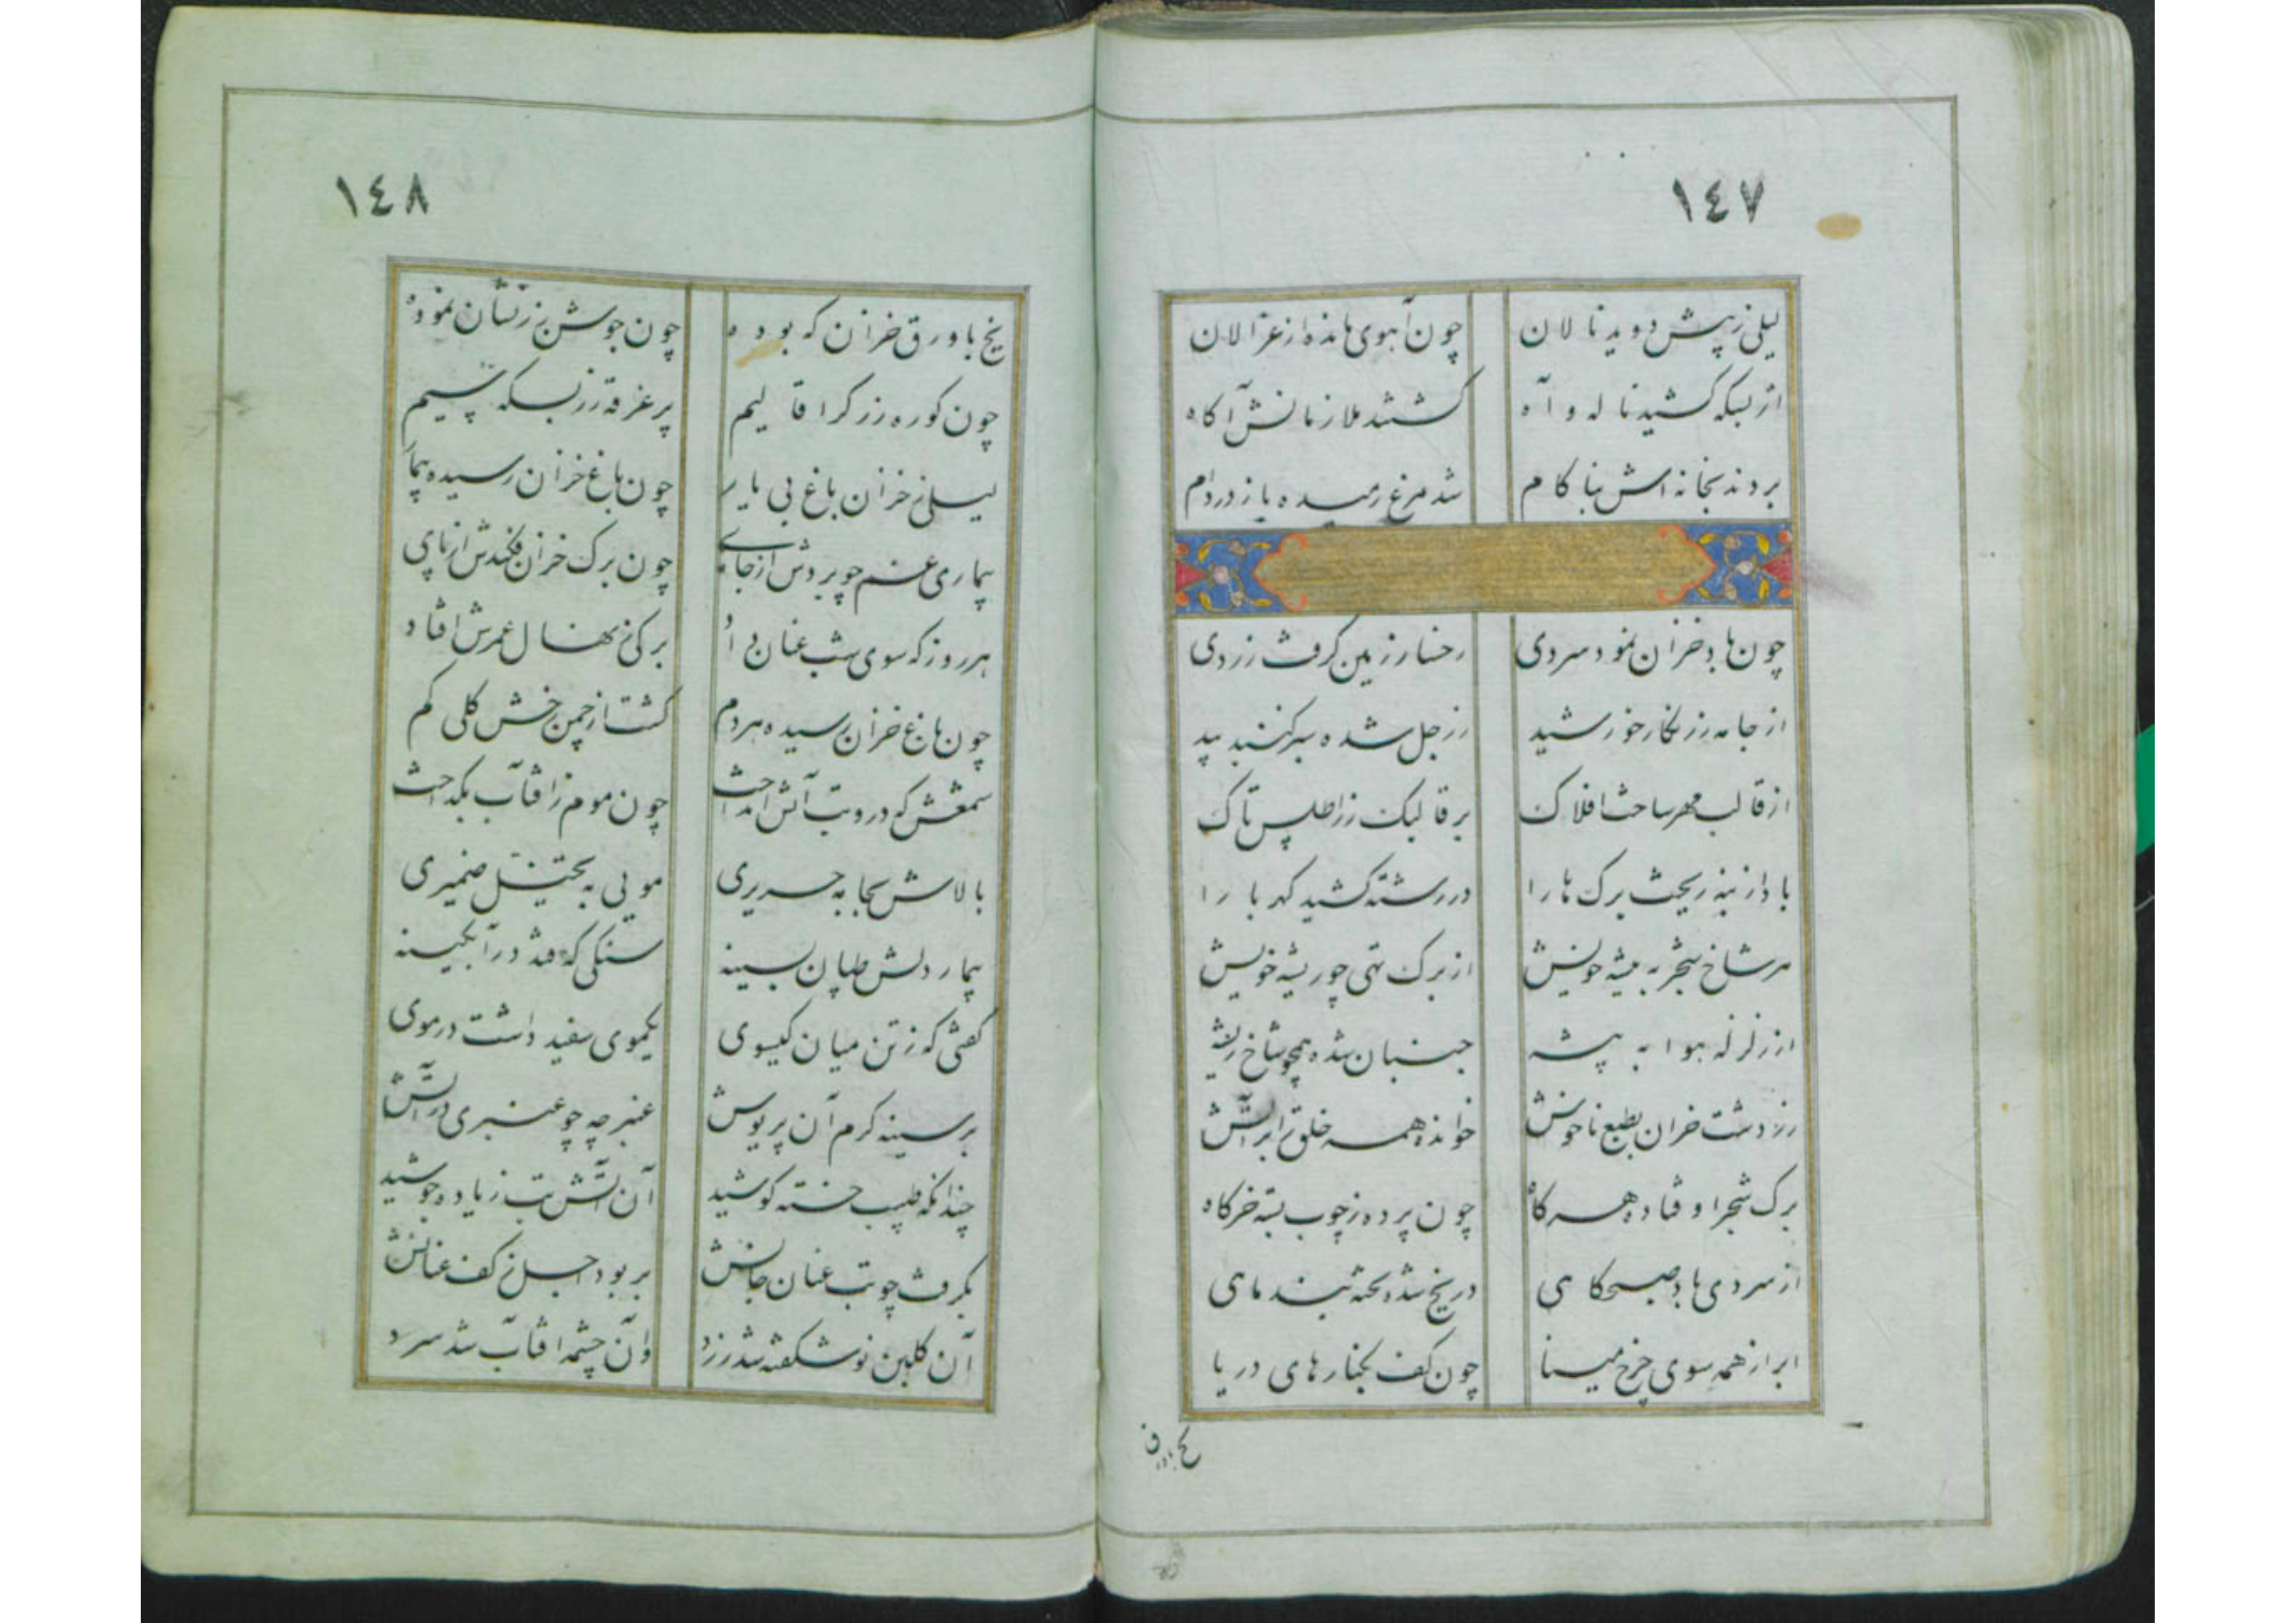 ١٤٧
لیلی ز پیش دوید نالان چون آهوی مانده از غزالان
از بسکه کشید ناله و آه کشتند ملازمانش آکاه
بردند بخانه اش بناکام شد مرغ رمیده باز در دام
چون باد خزان نمود سردی رخسار زمین کرفت زردی
از جامه زرنکار خورشید زرجل شده بر کنبد بید
از قالب مهر ساحت افلاک بر قالبک زر اطلس تاک
باد از ریخت برک ها را در رشته کشید کهربا را
هر شاخ شجر به بیشه خویش از برک تهی چو ریشه خویش
از زلزله هوا به بیشه جنبان شده همچو شاخ ریشه
زردشت خزان بطبع ناخوش خوانده همه خلق را بر آتش
برک شجر اوفتاده همه کاه چون پرده ز چوب بست خرکاه
از سردی باد صبحکاهی در یخ شده تخته بند ماهی
ابر از همه سوی چرخ مینا چون کف بکنارهای دریا
یخ با ورق
١٤٨
یخ با ورق خزان که بوده چون جوشن زرنشان نموده
چون کوره زرکر اقالیم پر غرقه زر ز سکه سیم
لیلی ز خزان باغ بی یار چون باغ خزان رسیده بیمار
بیماری غم چو بردش از جای چون برک خزان فکندش از پای
هر روز که سوی شب عنان داد برکی ز نهال عمرش افتاد
چون باغ خزان رسیده هر دم کشت از چمن رخش کلی کم
شمعش که درو تب آتش انداخت چون موم ز آفتاب بکداخت
بالاش بجابه حریری مویی به تخیل ضمیری
بیمار دلش طپان بسینه سنکی که فتد در آبکینه
کفتی که ز تن میان کیسوی یکموی سفید داشت در موی
بر سینه کرم آن پریوش عنبرچه چو عنبری در آتش
چندانکه طبیب خسته کوشید آن آتش تب زیاده جوشید
بکرفت چو تب عنان جانش بربود اجل ز کف عنانش
آن کلبن نو شکفته شد زرد وان چشمه آفتاب شد سرد